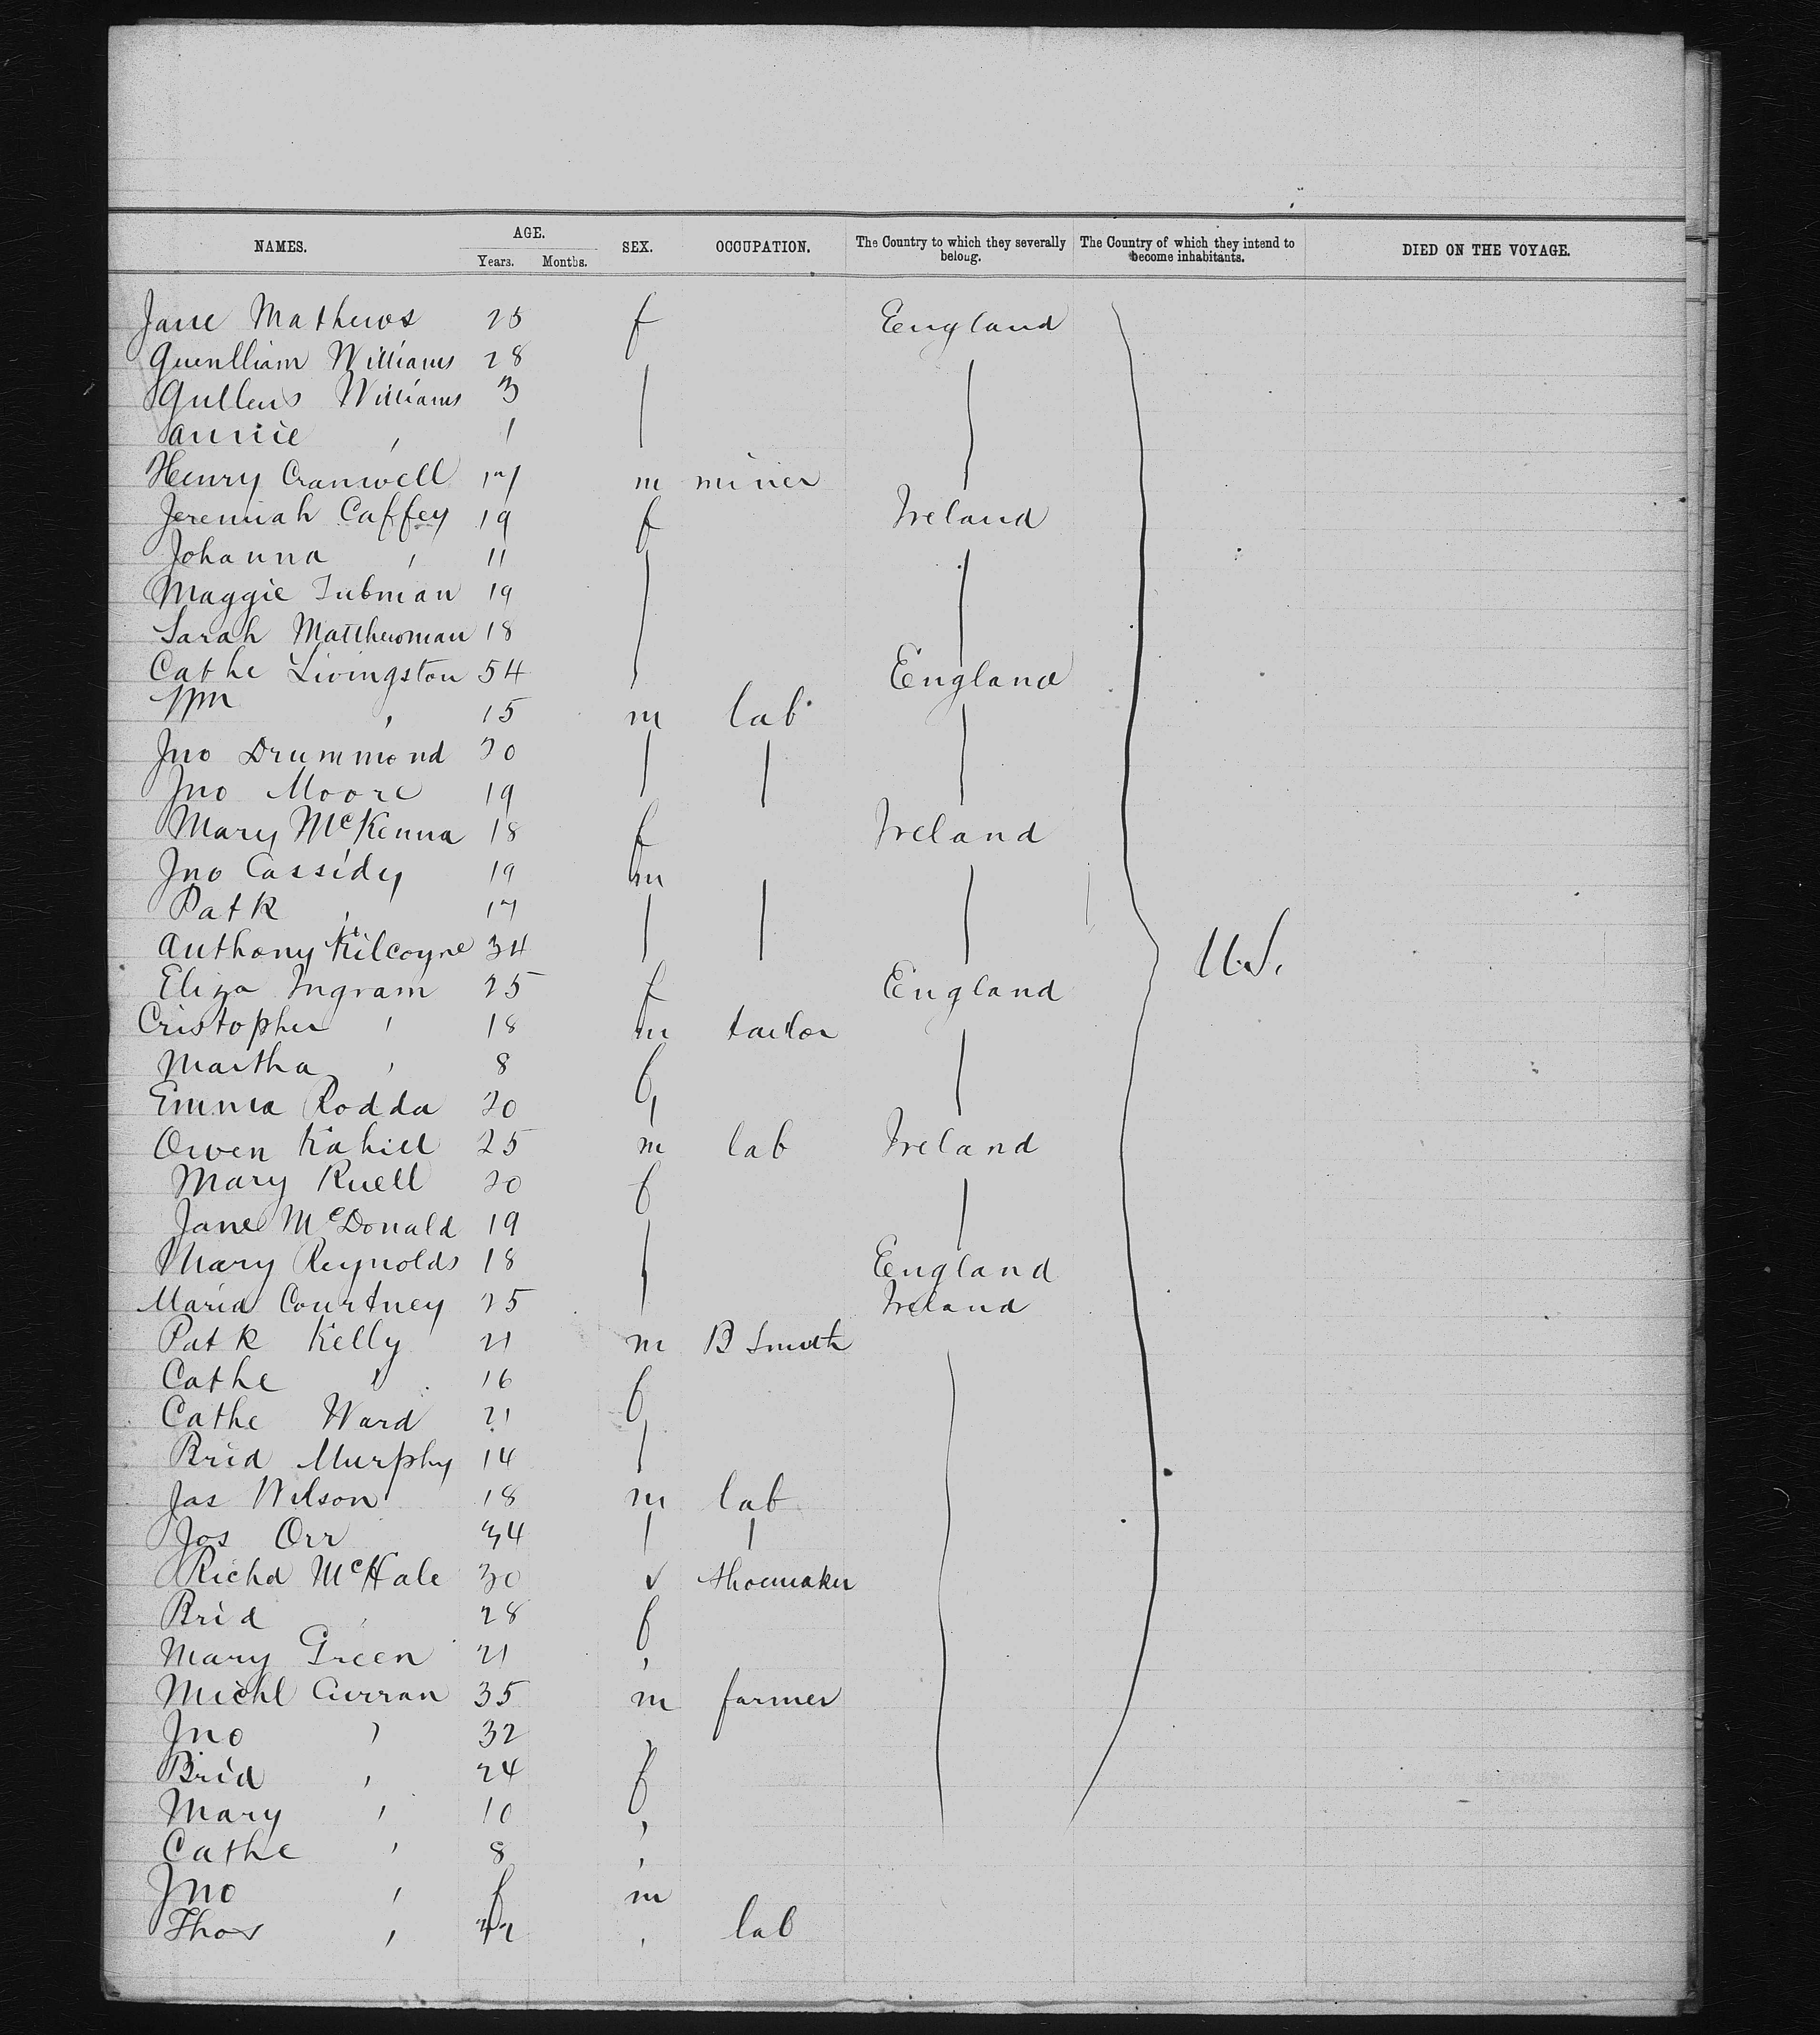 NAMES. AGE. SEX. OCCUPATION. The Country to which they severally belong. The Country of which they intend to become inhabitants. DIED ON THE VOYAGE.
Years. Months.
Jane Mathews 25 f England
Guenlliam Williams 28
Williams 3
Annie , 1
Henry Cranwell 17 m miner
Jeremiah Caffey 19 f Ireland
Johanna , 11
Maggie Tubman 19
Sarah Matthewman 18
Cathe Livingston 54 England
Wm , 15 m lab
Jno Drummond 30
Jno Moore 19
Mary McKenna 18 f Ireland
Jno Cassidy 19 m
Patk , 17
Anthony Kilcoyne 34 U.S.
Eliza Ingram 25 f England
Cristopher , 18 m tailor
Martha , 8 f
Emma Rodda 20 ,
Owen Kahill 25 m lab Ireland
Mary Ruell 20 f
Jane McDonald 19
Mary Reynolds 18 England
Maria Courtney 25 Ireland
Patk Kelly 21 m B Smith
Cathe , 16 f
Cathe Ward 21
Brid Murphy 14
Jas Wilson 18 m lab
Jos Orr 34
Richd McHale 30 shoemaker
Brid , 28 f
Mary Green 21 ,
Michl Curran 35 m farmer
Jno , 32 ,
Brid , 24 f
Mary , 10 ,
Cathe , 8 ,
Jno , m
Thos , , lab